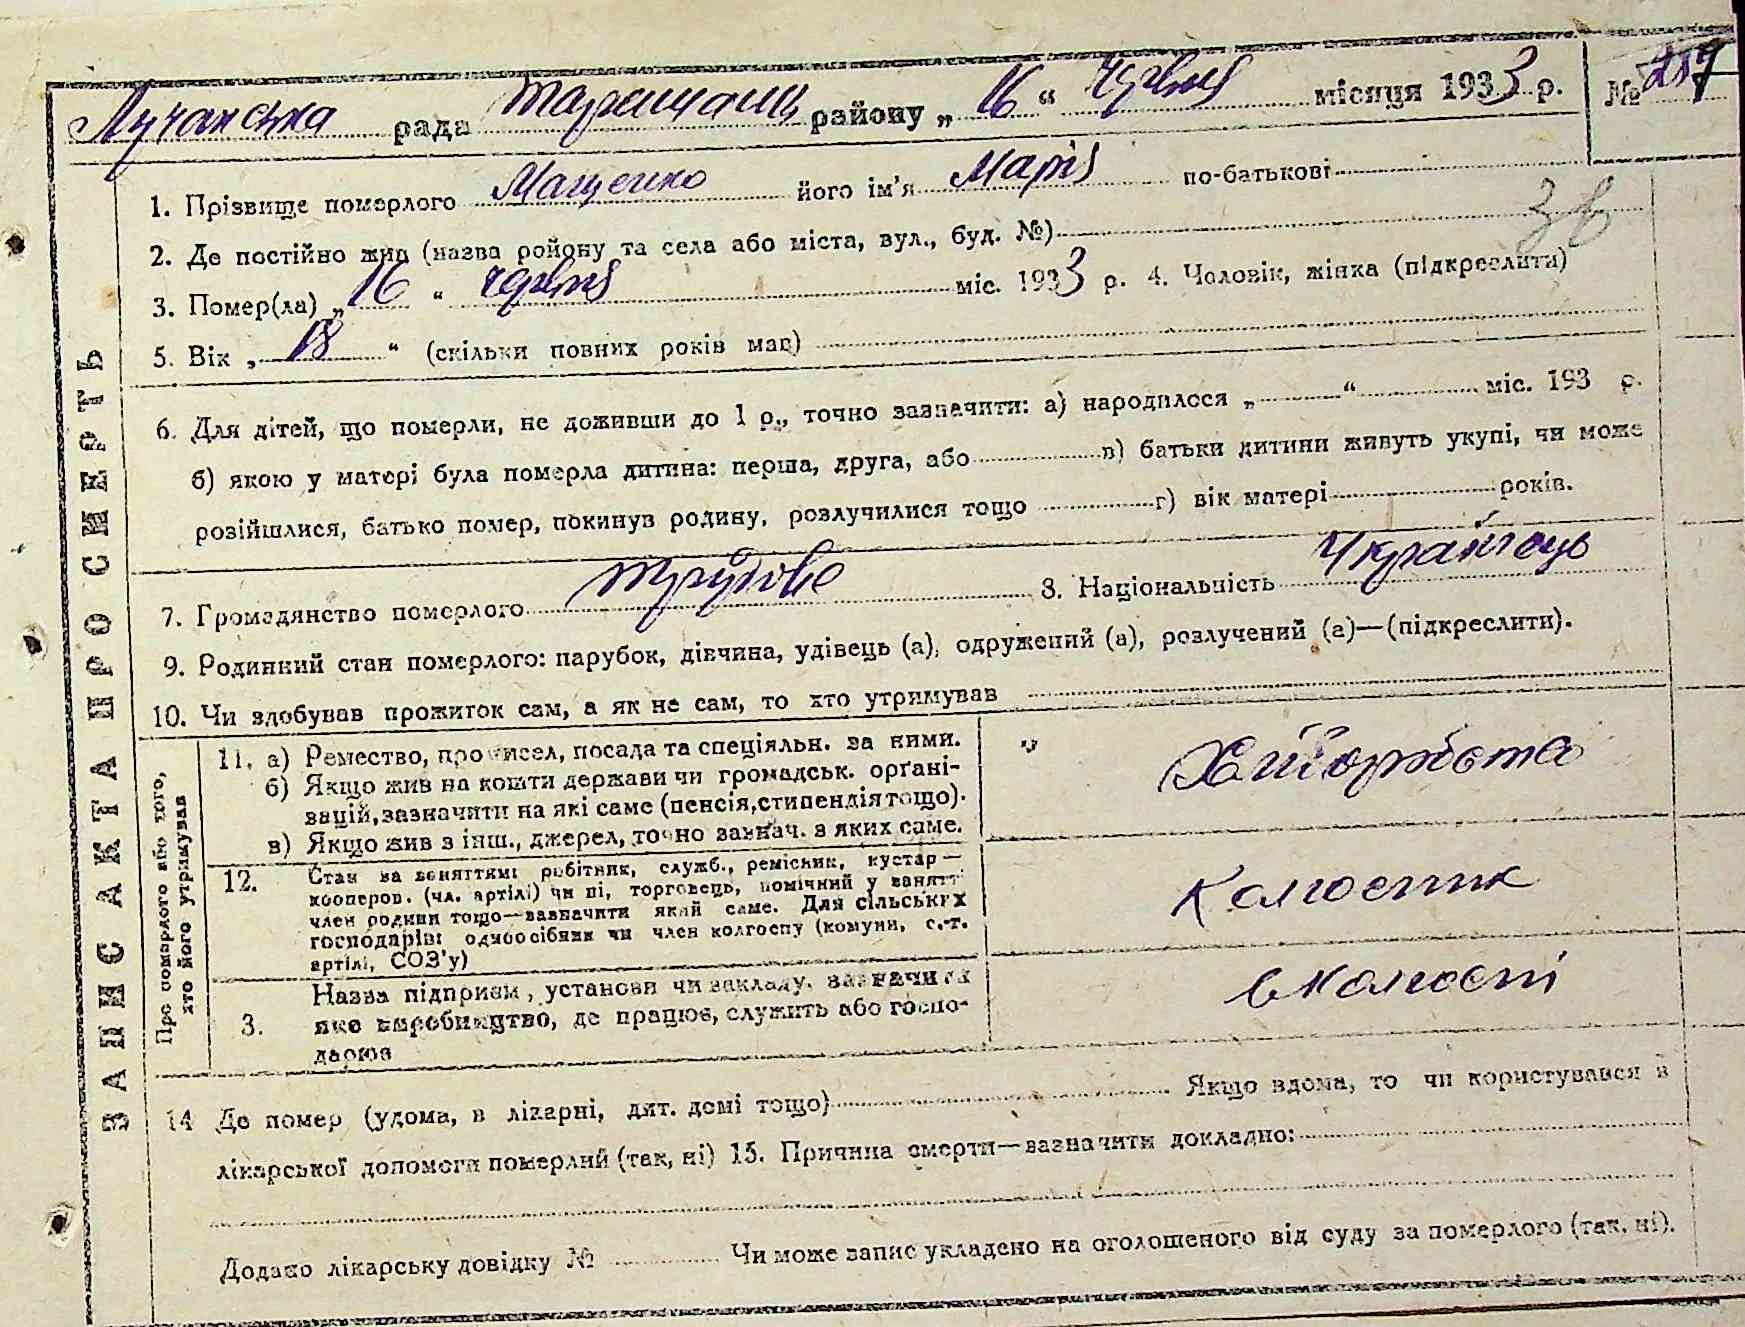 Лучанська рада Таращанськ району „ 16 “ Червня місяця 1933 р. № 217
1. Прізвище померлого Мащенко його ім'я Марія по-батькові
2. Де постійно жив (назва ройону та села або міста, вул., буд. №)
3. Помер(ла) „ 16 “ червня міс. 1933 р. 4. Чоловік, жінка (підкреслити)
5. Вік „ 18 “ (скільки повних років мав)
6. Для дітей, що померли, не доживши до 1 р., точно зазначити: а) народилося „ “ міс. 193 р.
б) якою у матері була померла дитина: перша, друга, або в) батьки дитини живуть укупі, чи може
розійшлися, батько помер, покинув родину, розлучилися тощо г) вік матері років.
7. Громадянство померлого 8. Національність Українець
9. Родинний стан померлого: парубок, дівчина, удівець (а), одружений (а), розлучений (а)—(підкреслити).
10. Чи здобував прожиток сам, а як не сам, то хто утримував
ЗАПИС АКТА ПРО СМЕРТЬ
Про померлого або того,
хто його утримував
11. а) Ремество, промисел, посада та спеціяльн. за ними.
б) Якщо жив на кошти держави чи громадськ. орґані-
зацій, зазначити на які саме (пенсія, стипендія тощо).
в) Якщо жив з інш., джерел, точно зазнач. з яких саме.
Хліборобство
12. Стан за заняттям: робітник, служб., ремісник, кустар—
кооперов. (чл. артілі) чи ні, торговець, помічний у занятт
член родини тощо—зазначити який саме. Для сільських
господарів: одноосібник чи член колгоспу (комуни, с.-г.
артілі, СОЗ'у)
Колгоспник
3. Назва підприєм, установи чи закладу, зазначити
яке виробництво, де працює, служить або госпо-
дарює
в колгоспі
14 Де помер (удома, в лікарні, дит. домі тощо) Якщо вдома, то чи користувався з
лікарської допомоги померлий (так, ні) 15. Причина смерти—зазначити докладно:
Додано лікарську довідку № Чи може запис укладено на оголошеного від суду за померлого (так, ні).